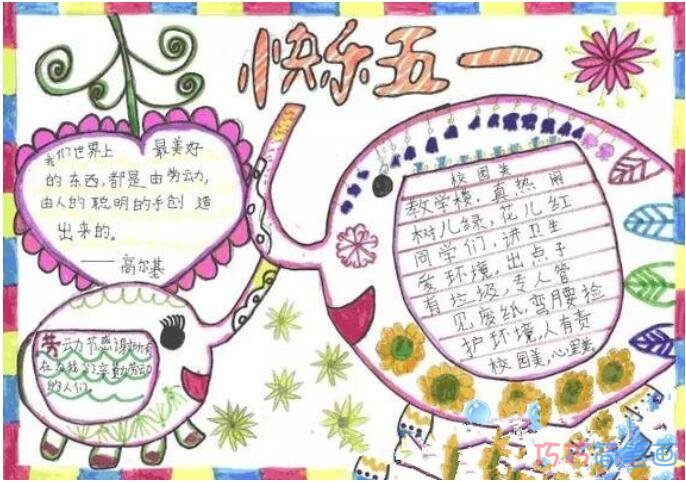 快乐五一
我们世界上 最美好
的东西,都是由劳动,
由人的聪明的手创造
出来的。
——高尔基
校园美
教学楼,真热闹
树儿绿,花儿红
同学们,讲卫生
爱环境,出点子
有垃圾,专人管
见废纸,弯腰捡
护环境,人有责
校园美,心里美。
劳动节感谢所有
在为我们辛勤劳动
的人们。
巧巧简笔画